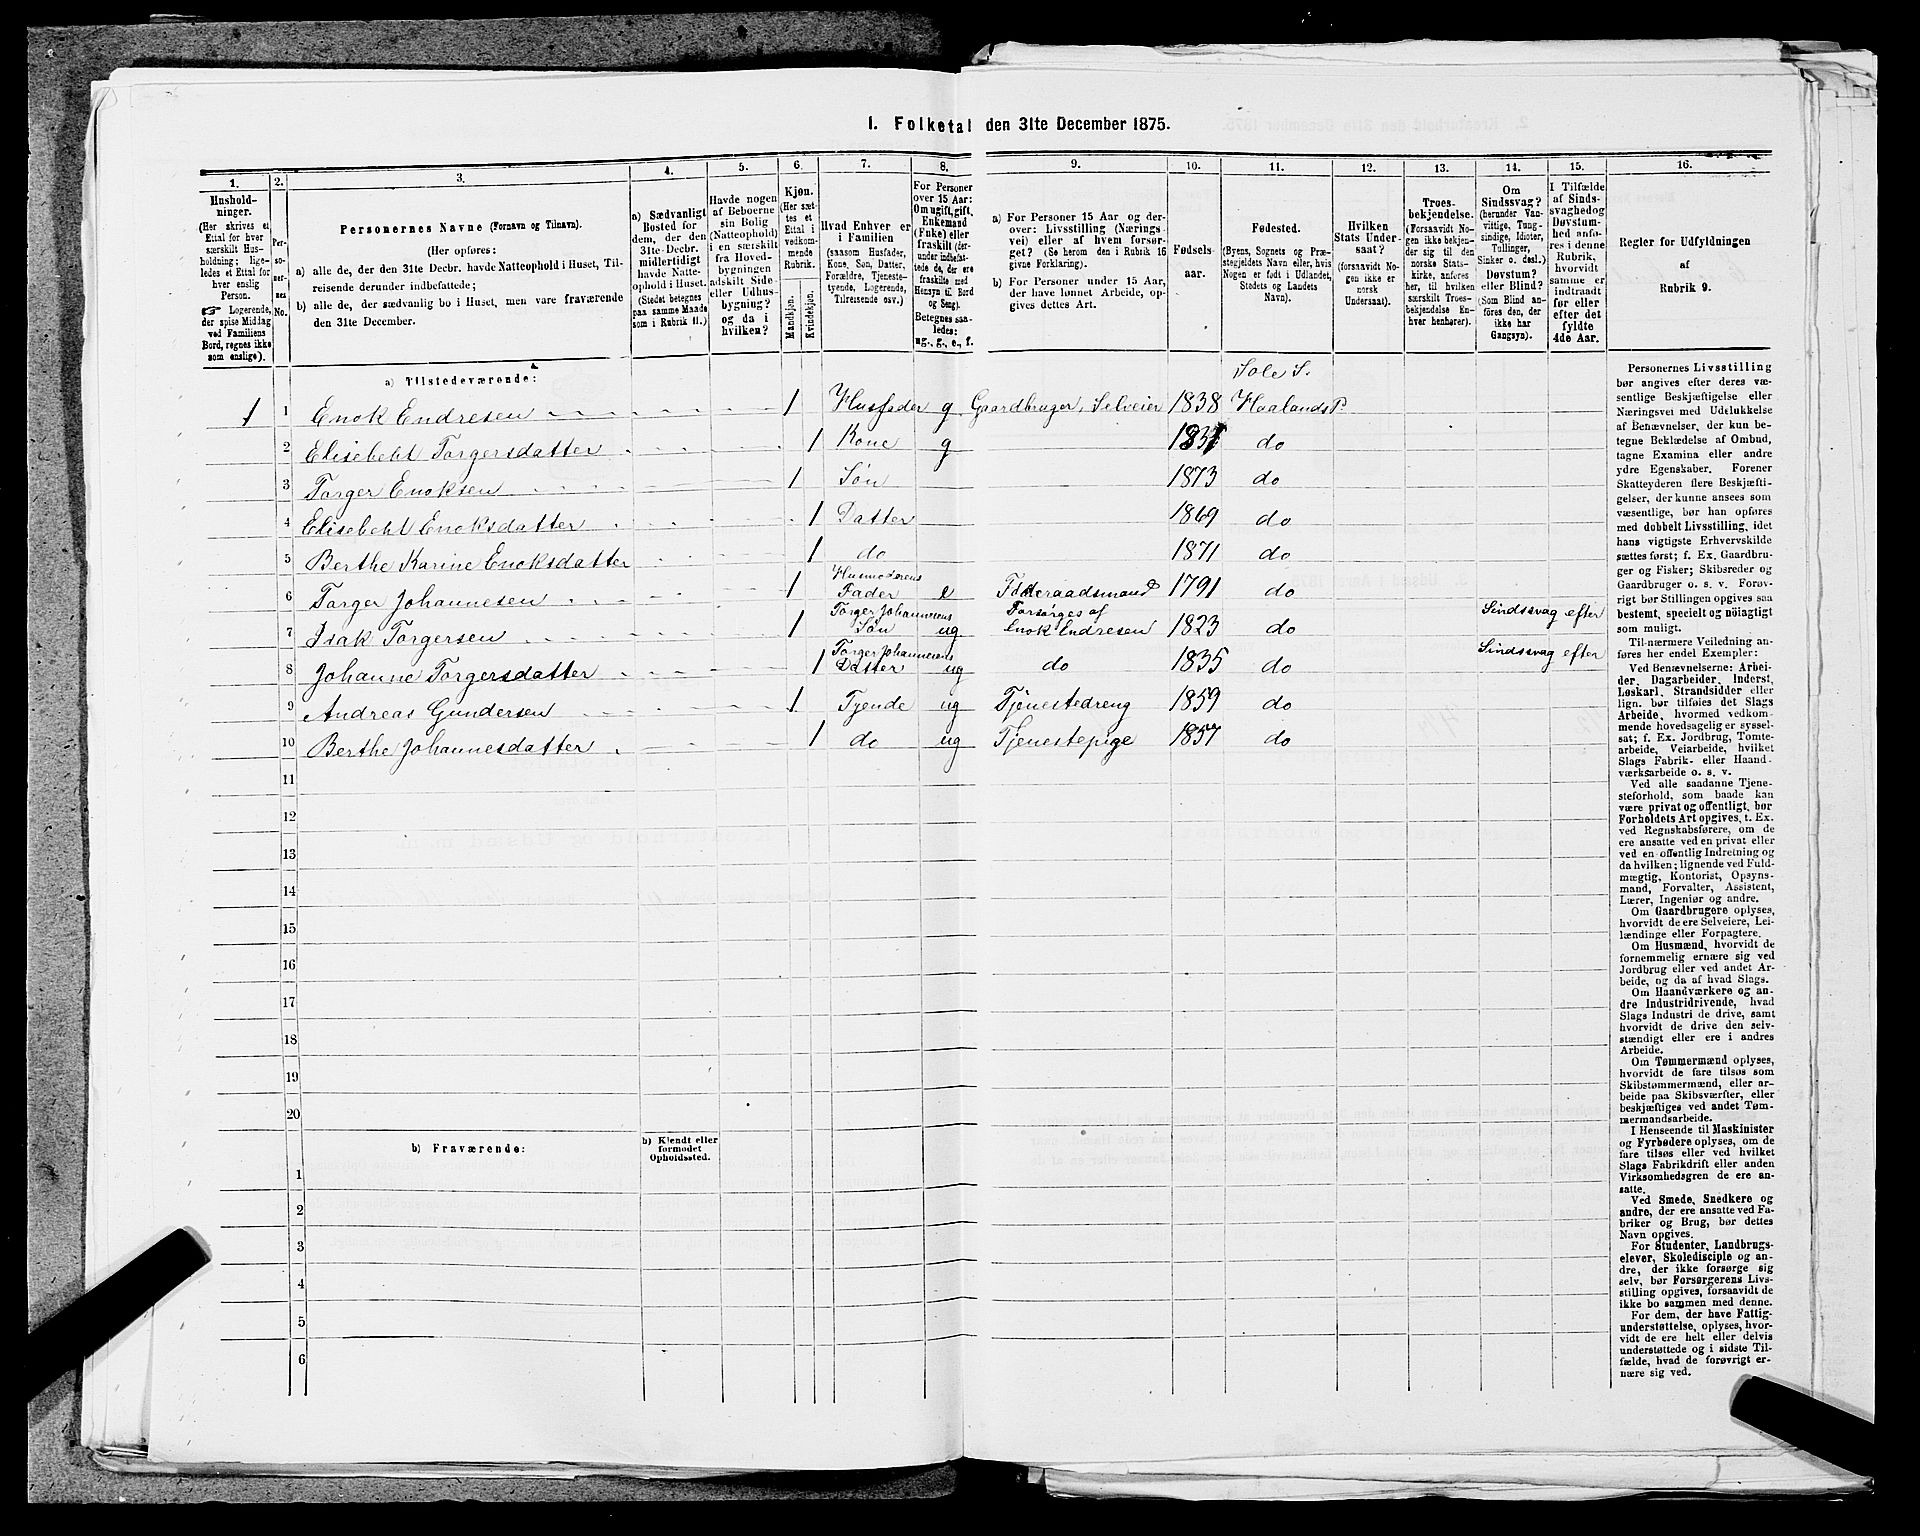 I. Folketal den 31te December 1875.
1. 2. 3. 4. 5. 6. 7. 8. 9. 10. 11. 12. 13. 14. 15. 16.
Hushold-
ninger.
(Her skrives et
Ettal for hver
særskilt Hus-
holdning; lige-
ledes et Ettal for
hver enslig
Person.
☞ Logerende,
der spise Middag
ved Familiens
Bord, regnes ikke
som enslige).
Per-
soner-
nes
No.
Personernes Navne (Fornavn og Tilnavn).
(Her opføres:
a) alle de, der den 31te Decbr. havde Natteophold i Huset, Til-
reisende derunder indbefattede;
b) alle de, der sædvanlig bo i Huset, men vare fraværende
den 31te December.
a) Sædvanligt
Bosted for
dem, der den
31te Decbr.
midlertidigt
havde Natte-
ophold i Huset.
(Stedet betegnes
paa samme Maade
som i Rubrik 11.)
Havde nogen
af Beboerne
sin Bolig
(Natteophold)
i en særskilt
fra Hoved-
bygningen
adskilt Side-
eller Udhus-
bygning?
og da i
hvilken?
Kjøn.
(Her sæt-
tes et
Ettal i
vedkom-
mende
Rubrik.
Mandkjøn.
Kvindekjøn.
Hvad Enhver er
i Familien
(saasom Husfader,
Kone, Søn, Datter,
Forældre, Tjeneste-
tyende, Logerende,
Tilreisende osv.)
For Personer
over 15 Aar:
Om ugift, gift,
Enkemand
(Enke) eller
fraskilt (der-
under indbefat-
tede de, der ere
fraskilte med
Hensyn til Bord
og Seng).
Betegnes saa-
ledes:
ug., g., e., f.
a) For Personer 15 Aar og der-
over: Livsstilling (Nærings-
vei) eller af hvem forsør-
get? (Se herom den i Rubrik 16
givne Forklaring).
b) For Personer under 15 Aar,
der have lønnet Arbeide, op-
gives dettes Art.
Fødsels-
aar.
Fødested.
(Byens, Sognets og Præ-
stegjeldets Navn eller, hvis
Nogen er født i Udlandet,
Stedets og Landets
Navn).
Hvilken
Stats Under-
saat?
(forsaavidt No-
gen ikke er
norsk
Undersaat).
Troes-
bekjendelse.
(Forsaavidt No-
gen ikke bekjen-
der sig til den
norske Stats-
kirke, anføres
her, til hvilken
særskilt Troes-
bekjendelse En-
hver henhører).
Om
Sindssvag?
(herunder Van-
vittige, Tung-
sindige, Idioter,
Tullinger,
Sinker o. desl.)
Døvstum?
eller Blind?
(Som Blind an-
føres den, der
ikke har
Gangsyn).
I Tilfælde
af Sinds-
svaghed og
Døvstum-
hed anfø-
res i denne
Rubrik,
hvorvidt
samme er
indtraadt
før eller
efter det
fyldte
4de Aar.
Regler for Udfyldningen
af
Rubrik 9.
a) Tilstedeværende:
Sole S.
1 1 Enok Endresen 1 Husfader g Gaardbruger, Selveier 1838 Haalands P.
2 Elisebeht Torgersdatter 1 Kone g 1831 do
3 Torger Enoksen 1 Søn 1873 do
4 Elisebeht Enoksdatter 1 Datter 1869 do
5 Berthe Karine Enoksdatter 1 do 1871 do
6 Torger Johannesen 1 Husmoderens Fader e Føderaadsmand 1791 do
7 Isak Torgersen 1 Torger Johannesens Søn ug Forsørges af Enok Endresen 1823 do Sindssvag efter
8 Johanne Torgersdatter 1 Torger Johannesens Datter ug do 1835 do Sindssvag efter
9 Andreas Gundersen 1 Tyende ug Tjenestedreng 1859 do
10 Berthe Johannesdatter 1 do ug Tjenestepige 1857 do
11
12
13
14
15
16
17
18
19
20
b) Fraværende:
b) Kjendt eller
formodet
Opholdssted.
1
2
3
4
5
6
Personernes Livsstilling
bør angives efter deres væ-
sentlige Beskjæftigelse eller
Næringsvei med Udelukkelse
af Benævnelser, der kun be-
tegne Beklædelse af Ombud,
tagne Examina eller andre
ydre Egenskaber. Forener
Skatteyderen flere Beskjæfti-
gelser, der kunne ansees som
væsentlige, bør han opføres
med dobbelt Livsstilling, idet
hans vigtigste Erhvervskilde
sættes først; f. Ex. Gaardbru-
ger og Fisker; Skibsreder og
Gaardbruger o. s. v. Forøv-
rigt bør Stillingen opgives saa
bestemt, specielt og nøiagtigt
som muligt.
Til nærmere Veiledning an-
føres her endel Exempler:
Ved Benævnelserne: Arbei-
der, Dagarbeider, Inderst,
Løskarl, Strandsidder eller
lign. bør tilføies det Slags
Arbeide, hvormed vedkom-
mende hovedsagelig er syssel-
sat; f. Ex. Jordbrug, Tomte-
arbeide, Veiarbeide, hvilket
Slags Fabrik- eller Haand-
værksarbeide o. s. v.
Ved alle saadanne Tjene-
steforhold, som baade kan
være privat og offentligt, bør
Forholdets Art opgives, t. Ex.
ved Regnskabsførere, om de
ere ansatte ved en privat eller
ved en offentlig Indretning og
da hvilken; lignende ved Fuld-
mægtig, Kontorist, Opsyns-
mand, Forvalter, Assistent,
Lærer, Ingeniør og andre.
Om Gaardbrugere oplyses,
hvorvidt de ere Selveiere, Lei-
lændinge eller Forpagtere.
Om Husmænd, hvorvidt de
fornemmelig ernære sig ved
Jordbrug eller ved andet Ar-
beide, og da af hvad Slags.
Om Haandværkere og an-
dre Industridrivende, hvad
Slags Industri de drive, samt
hvorvidt de drive den selv-
stændigt eller ere i andres
Arbeide.
Om Tømmermænd oplyses,
hvorvidt de fare tilsøs som
Skibstømmermænd, eller ar-
beide paa Skibsværfter, eller
beskjæftiges ved andet Tøm-
mermandsarbeide.
I Henseende til Maskinister
og Fyrbødere oplyses, om de
fare tilsøs eller ved hvilket
Slags Fabrikdrift eller anden
Virksomhedsgren de ere an-
satte.
Ved Smede, Snedkere og
andre, der ere ansatte ved Fa-
briker og Brug, bør dettes
Navn opgives.
For Studenter, Landbrugs-
elever, Skoledisciple og an-
dre, der ikke forsørge sig
selv, bør Forsørgerens Livs-
stilling opgives, forsaavidt de
ikke bo sammen med denne.
For dem, der have Fattig-
understøttelse, oplyses, hvor-
vidt de ere helt eller delvis
understøttede og i sidste Til-
fælde, hvad de forøvrigt er-
nære sig ved.